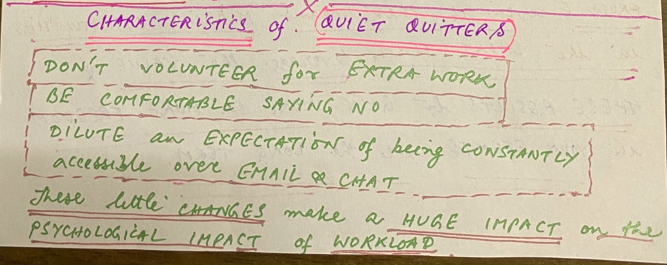 CHARACTERISTICS of. QUIET QUITTERS
DON'T VOLUNTEER for EXTRA WORK
BE COMFORTABLE SAYING NO
DILUTE an EXPECTATION of being CONSTANTLY
accessible over EMAIL & CHAT
These little CHANGES make a HUGE IMPACT on the
PSYCHOLOGICAL IMPACT of WORKLOAD